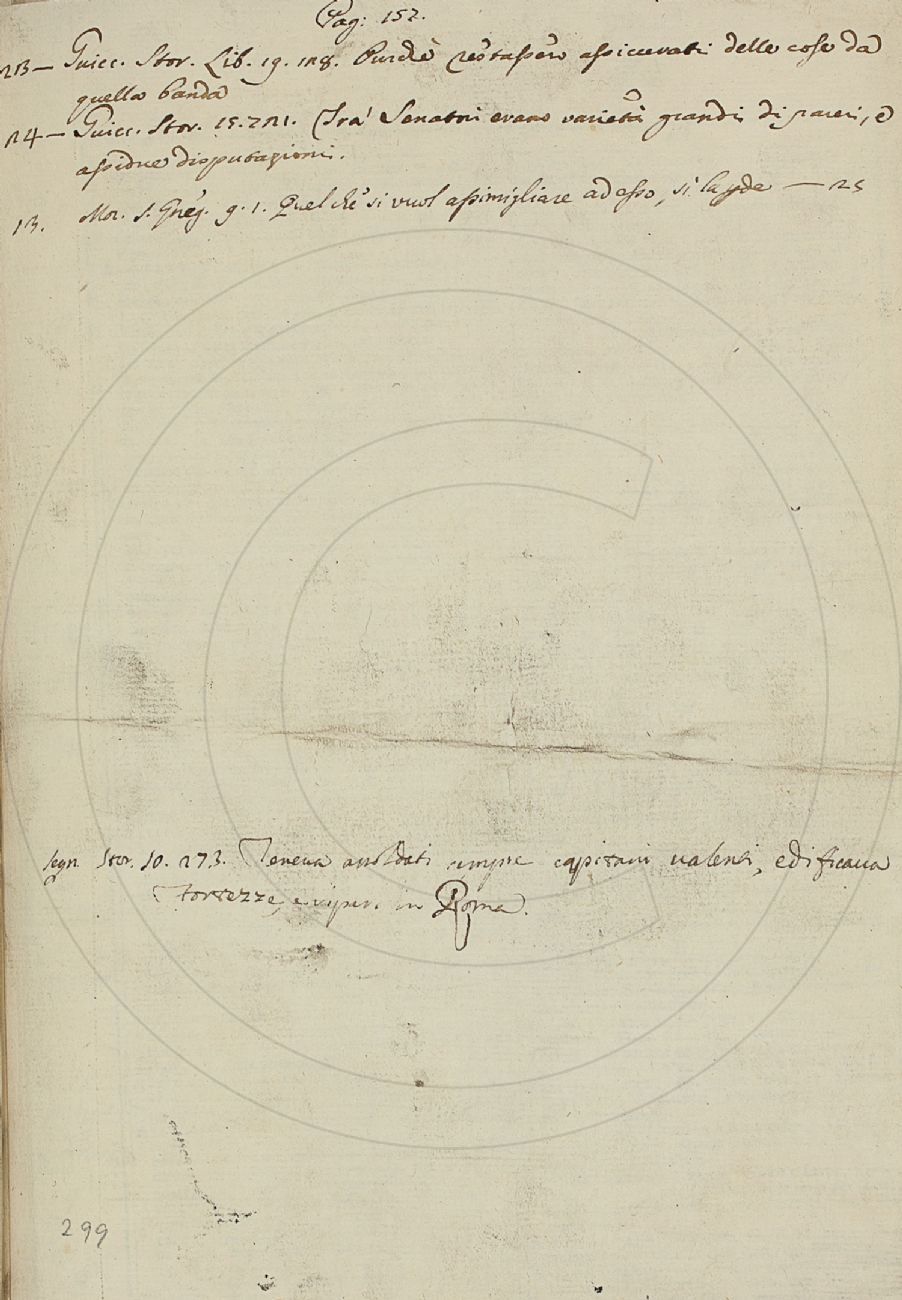 Pag: 152.
213 — Guicc. Stor. Lib. 19. 118. Purchè restassero assicurati delle cose da
quella banda
14 — Guicc. Stor. 15. 721. Tra' Senatori erano varietà grandi di pareri, e
assidue disputazioni.
13. Mor. S. Greg. 9. 1. Quel che si vuol assimigliare ad esso, si la — 25
Segn. Stor. 10. 273. Teneva assoldati sempre capitani valenti, edificava
Fortezze, in Roma.
299